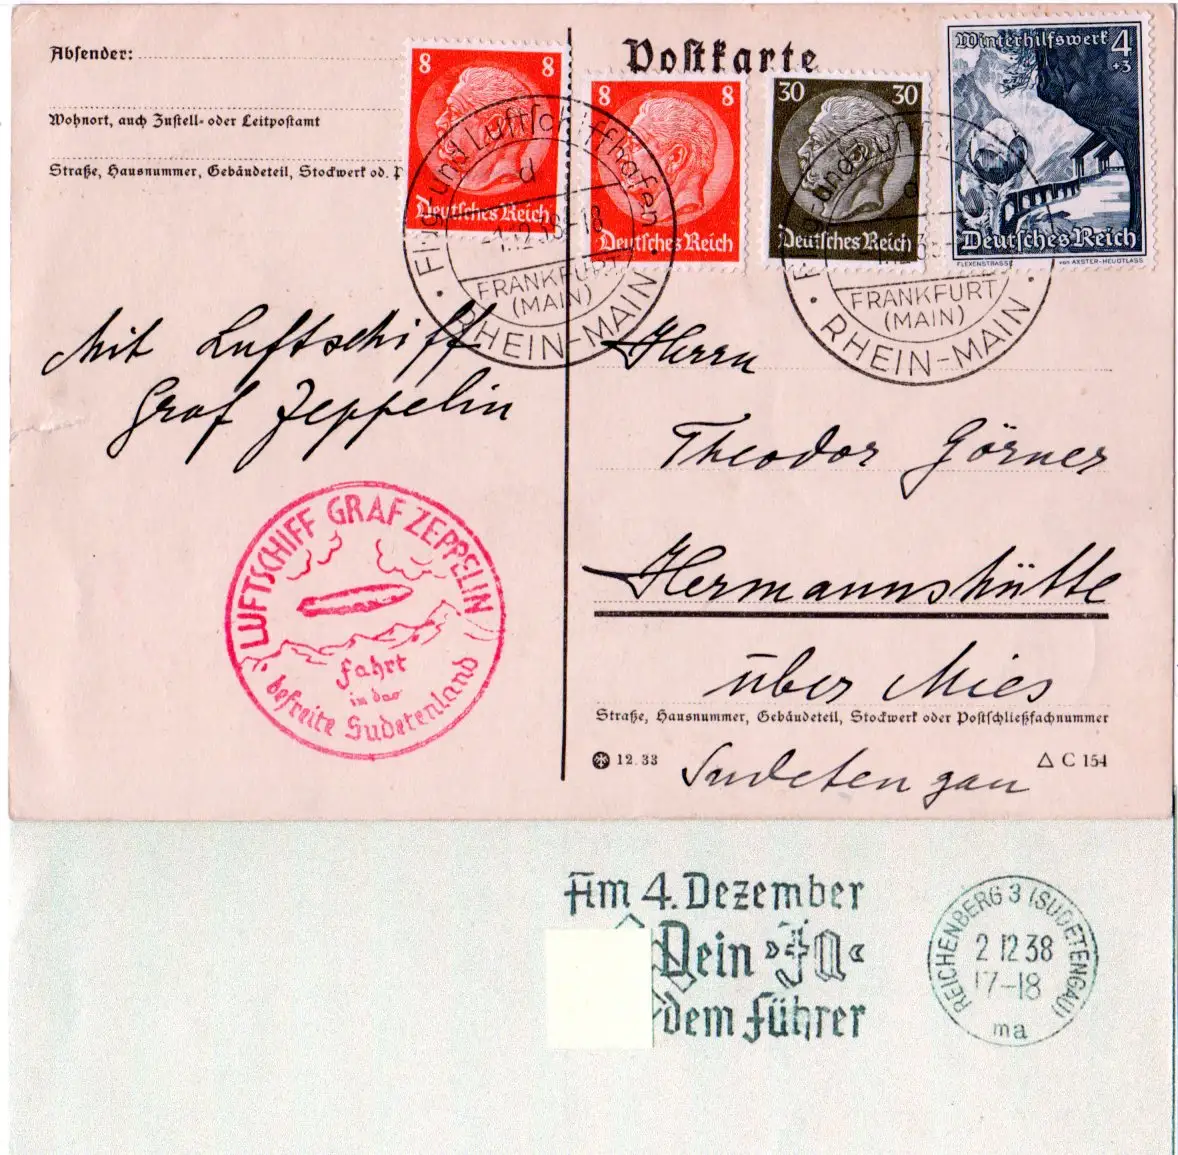 Absender:
Wohnort, auch Zustell- oder Leitpostamt
Straße, Hausnummer, Gebäudeteil, Stockwerk od. P
Postkarte
8 8
Deutsches Reich
8 8
Deutsches Reich
30 30
Deutsches Reich
Winterhilfswerk 4
+3
Deutsches Reich
FLEXENSTRASSE von AXSTER-HEUDTLASS
Flug- und Luftschiffhafen
d
-1.12.38-18
FRANKFURT
(MAIN)
RHEIN-MAIN
FRANKFURT
(MAIN)
RHEIN-MAIN
Mit Luftschiff
Graf Zeppelin
LUFTSCHIFF GRAF ZEPPELIN
Fahrt
in das
befreite Sudetenland
Herrn
Theodor Görner
Hermannshütte
über Mies
Straße, Hausnummer, Gebäudeteil, Stockwerk oder Postschließfachnummer
12.33
C 154
Sudetengau
Am 4. Dezember
Dein »JA«
dem Führer
REICHENBERG 3 (SUDETENGAU)
2 12 38
17-18
ma